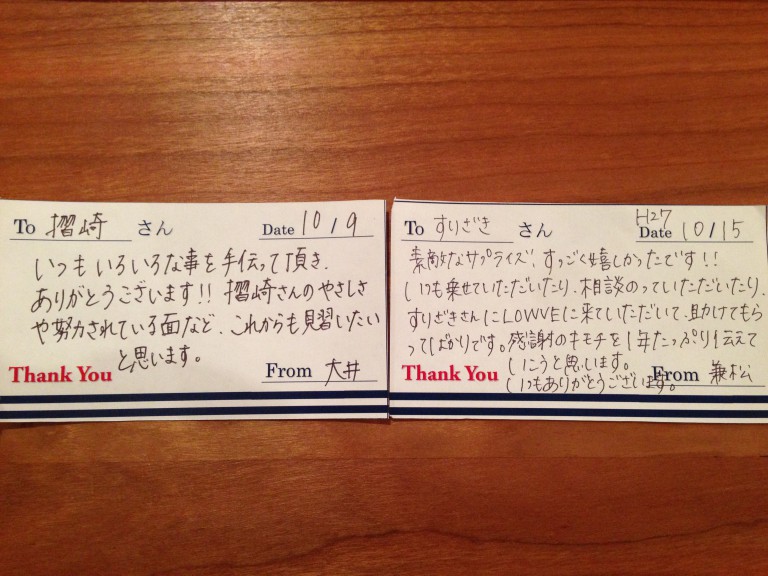 To 摺崎 さん Date 10/9
いつもいろいろな事を手伝って頂き、
ありがとうございます!! 摺崎さんのやさしさ
や努力されている面など、これからも見習いたい
と思います。
Thank You From 大井
To すりざき さん H27 Date 10/15
素敵なサプライズ、すっごく嬉しかったです!!
いつも乗せていただいたり、相談のっていただいたり、
すりざきさんにLOWVEに来ていただいて、助けてもら
ってばかりです。感謝のキモチを1年たっぷり伝えて
いこうと思います。
いつもありがとうございます。
Thank You From 兼松